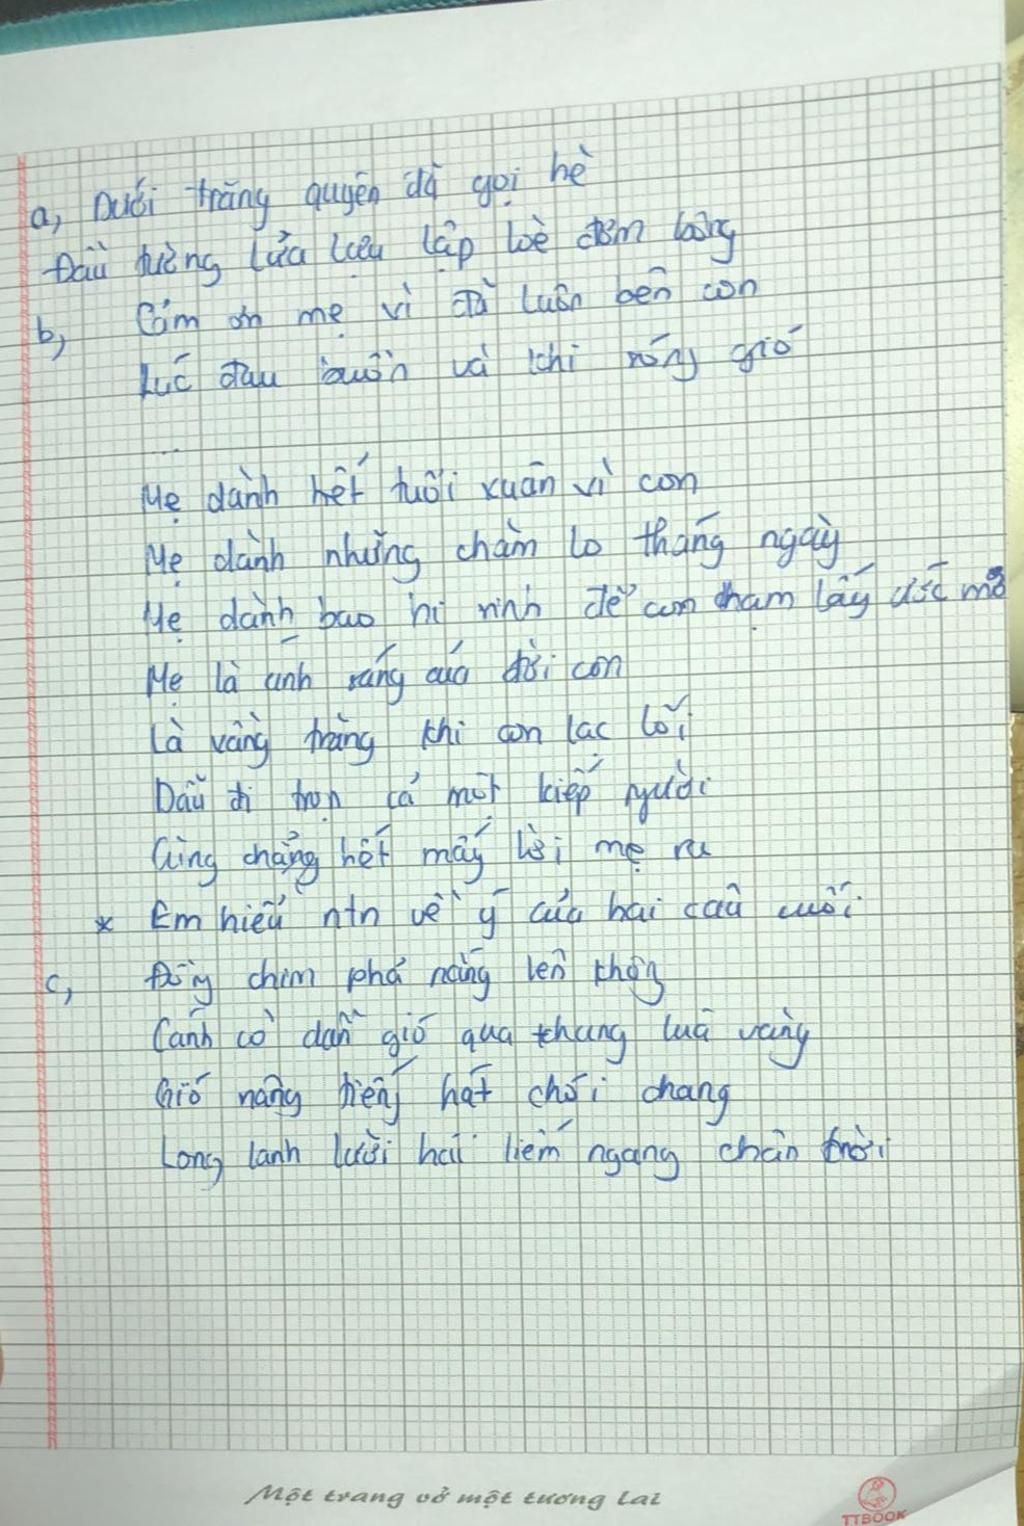 a, Dưới trăng quyên đã gọi hè
Đầu tường lửa lựu lập loè đơm bông
b, Cảm ơn mẹ vì đã luôn bên con
Lúc đau buồn và khi sóng gió
...
Mẹ dành hết tuổi xuân vì con
Mẹ dành những chăm lo tháng ngày
Mẹ dành bao hi sinh để con chạm lấy ước mơ
Mẹ là ánh sáng của đời con
Là vầng trăng khi con lạc lối
Dẫu đi trọn cả một kiếp người
Cũng chẳng hết mấy lời mẹ ru
* Em hiểu ntn về ý của hai câu cuối
c, chim phá nắng lên
Cánh cò dẫn gió qua thung lúa vàng
Gió nâng tiếng hát chói chang
Long lanh lưỡi hái liếm ngang chân trời
Một trang vở một tương lai
TTBOOK